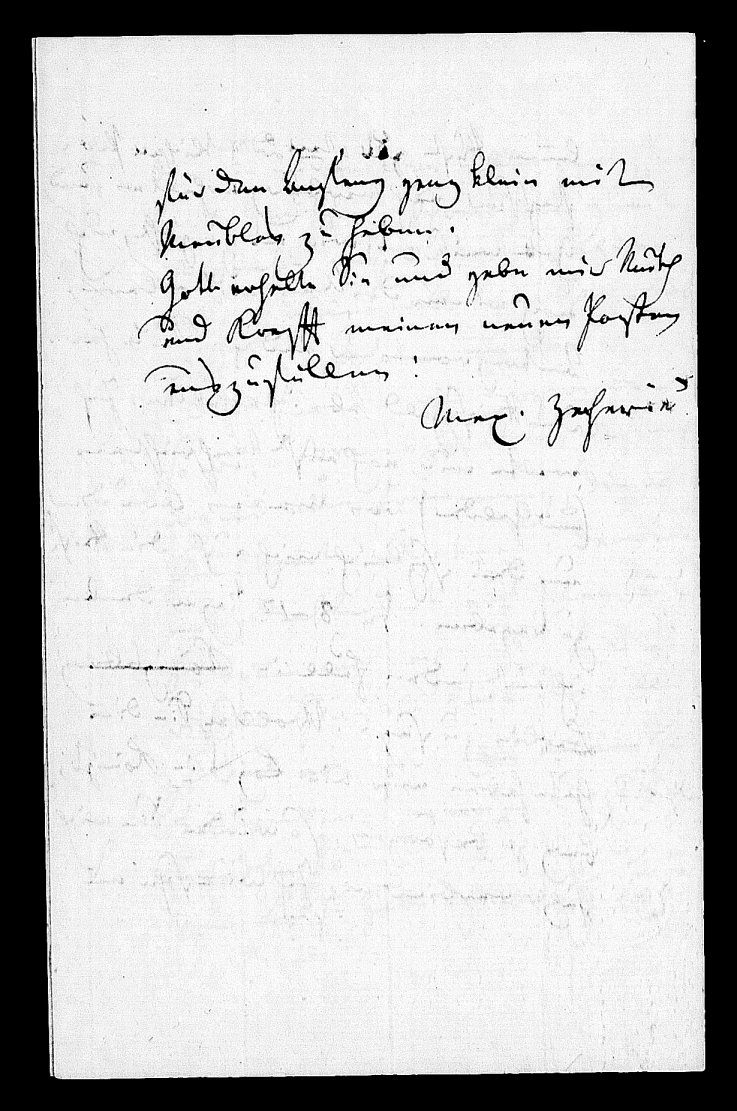 für den Anfang ganz klein mit
Meubles zu haben.
Gott erhalte Sie und gebe mir Muth
und Krafft meinen neuen Posten
auszufüllen!
Max. Zacharias